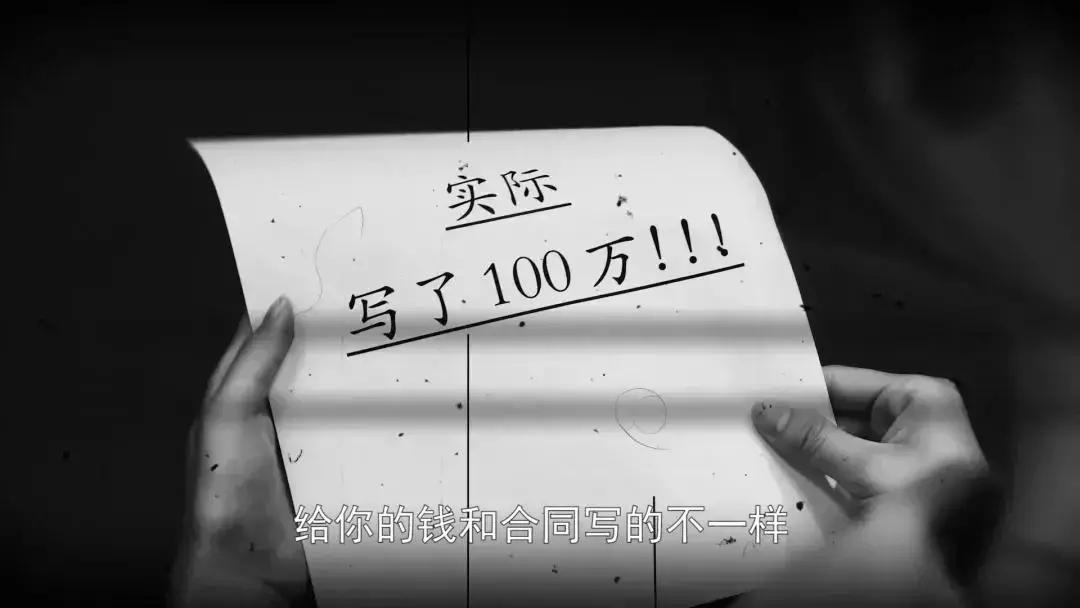 实际
写了100万!!!
给你的钱和合同写的不一样